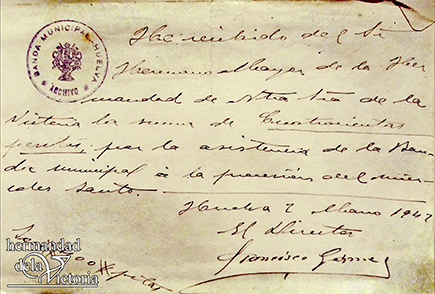 BANDA MUNICIPAL-HUELVA
ARCHIVO
He recibido del Sr
Hermano Mayor de la Her
mandad de Ntra Sra de la
Victoria la suma de Cuatrocientas
pesetas, por la asistencia de la Ban
da municipal á la procesión del miér
coles santo.
Huelva 7 Mayo 194
El Director
Francisco
00 # pesetas
hermandad
dela
Victoria